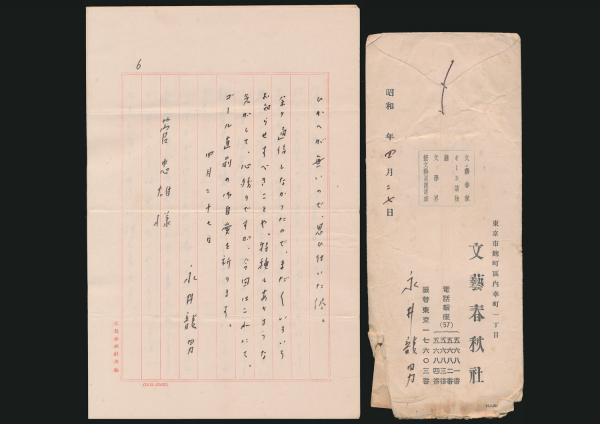 6
ひかへが無いので、思ひ付いた候。
全り通信しなかつたので、まだ〱いろいろ
お知らせすべきことや、特種もありさうな
気がして、心残りですが、今回はこれにて。
ゴール直前の御自愛を祈ります。
四月二十七日
永井龍男
菅忠雄様
東京市麹町區内幸町一丁目
文藝春秋社
電話銀座(57)
五六八一番
五六八二番
五六八三番
五六八四番
振替東京一七六〇三番
永井龍男
文藝春秋
オール讀物
文學界
昭和 年 四月二七日